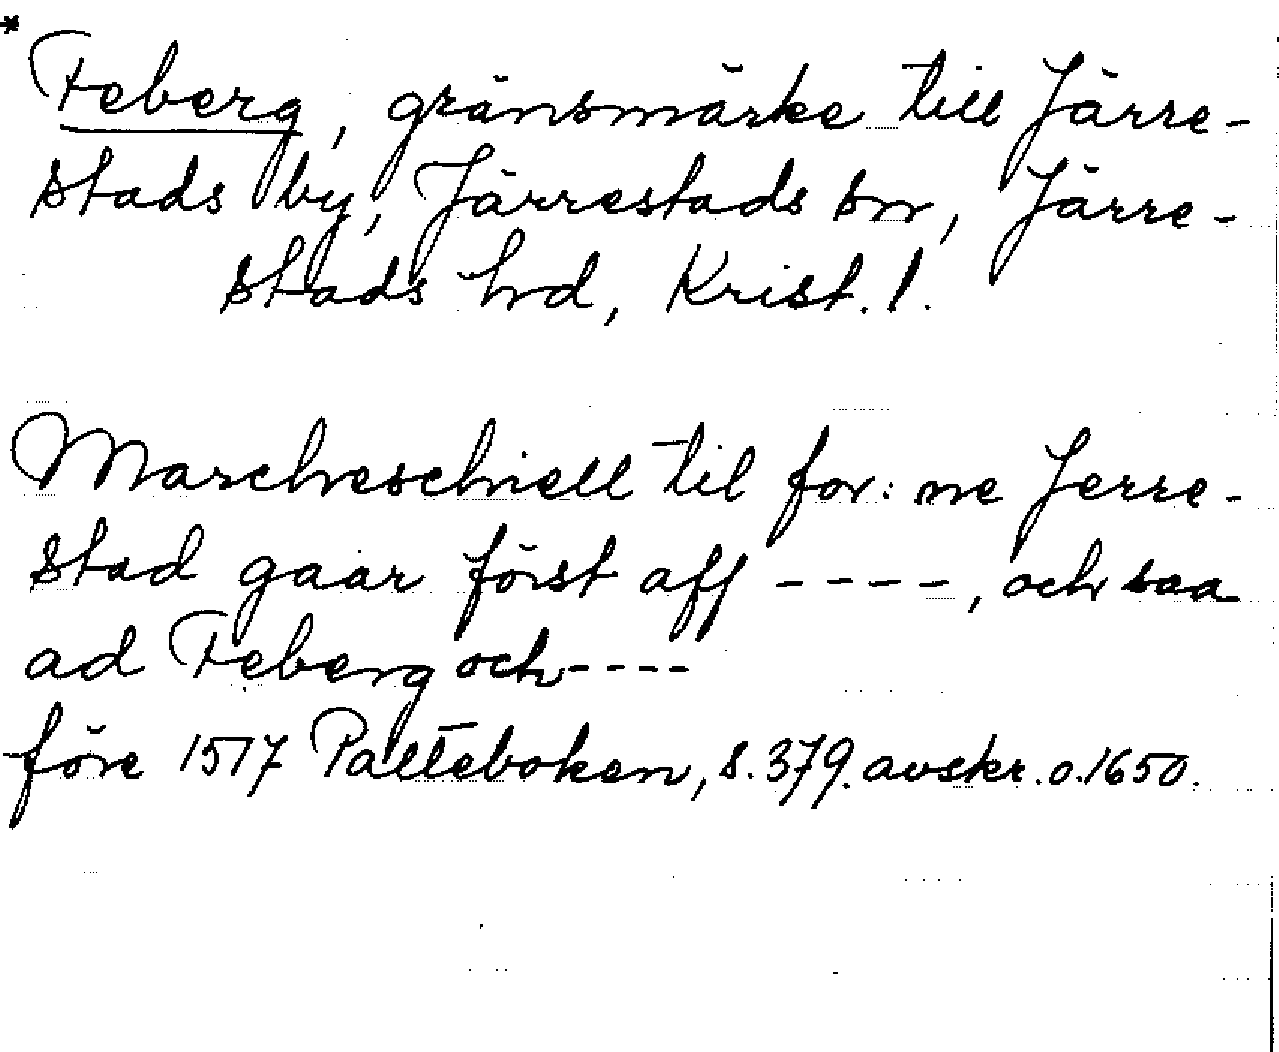 * Feberg, gränsmärke till Järre-
stads by, Järrestads sn, Järre-
stads hd, Krist. l.
Marcheschiell til for: ne Jerre-
stad gaar först aff ----, och saa
ad Feberg och ----
före 1517 Palteboken, s. 379. avskr. o. 1650.